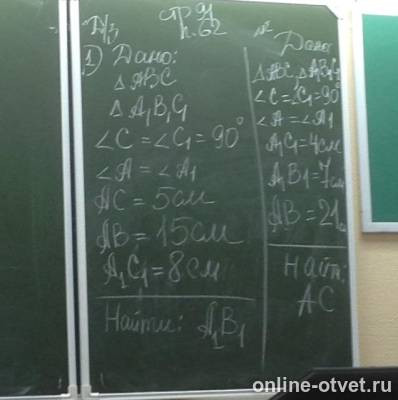 Д/з стр 91
п. 62
1) Дано:
△ABC
△A₁B₁C₁
∠C = ∠C₁ = 90°
∠A = ∠A₁
AC = 5см
AB = 15см
A₁C₁ = 8см
Найти: A₁B₁
№2
Дано
△ABC, △A₁B₁C₁
∠C = ∠C₁ = 90°
∠A = ∠A₁
A₁C₁ = 4см
A₁B₁ = 7см
AB = 21см
Найт:
AC
online-otvet.ru